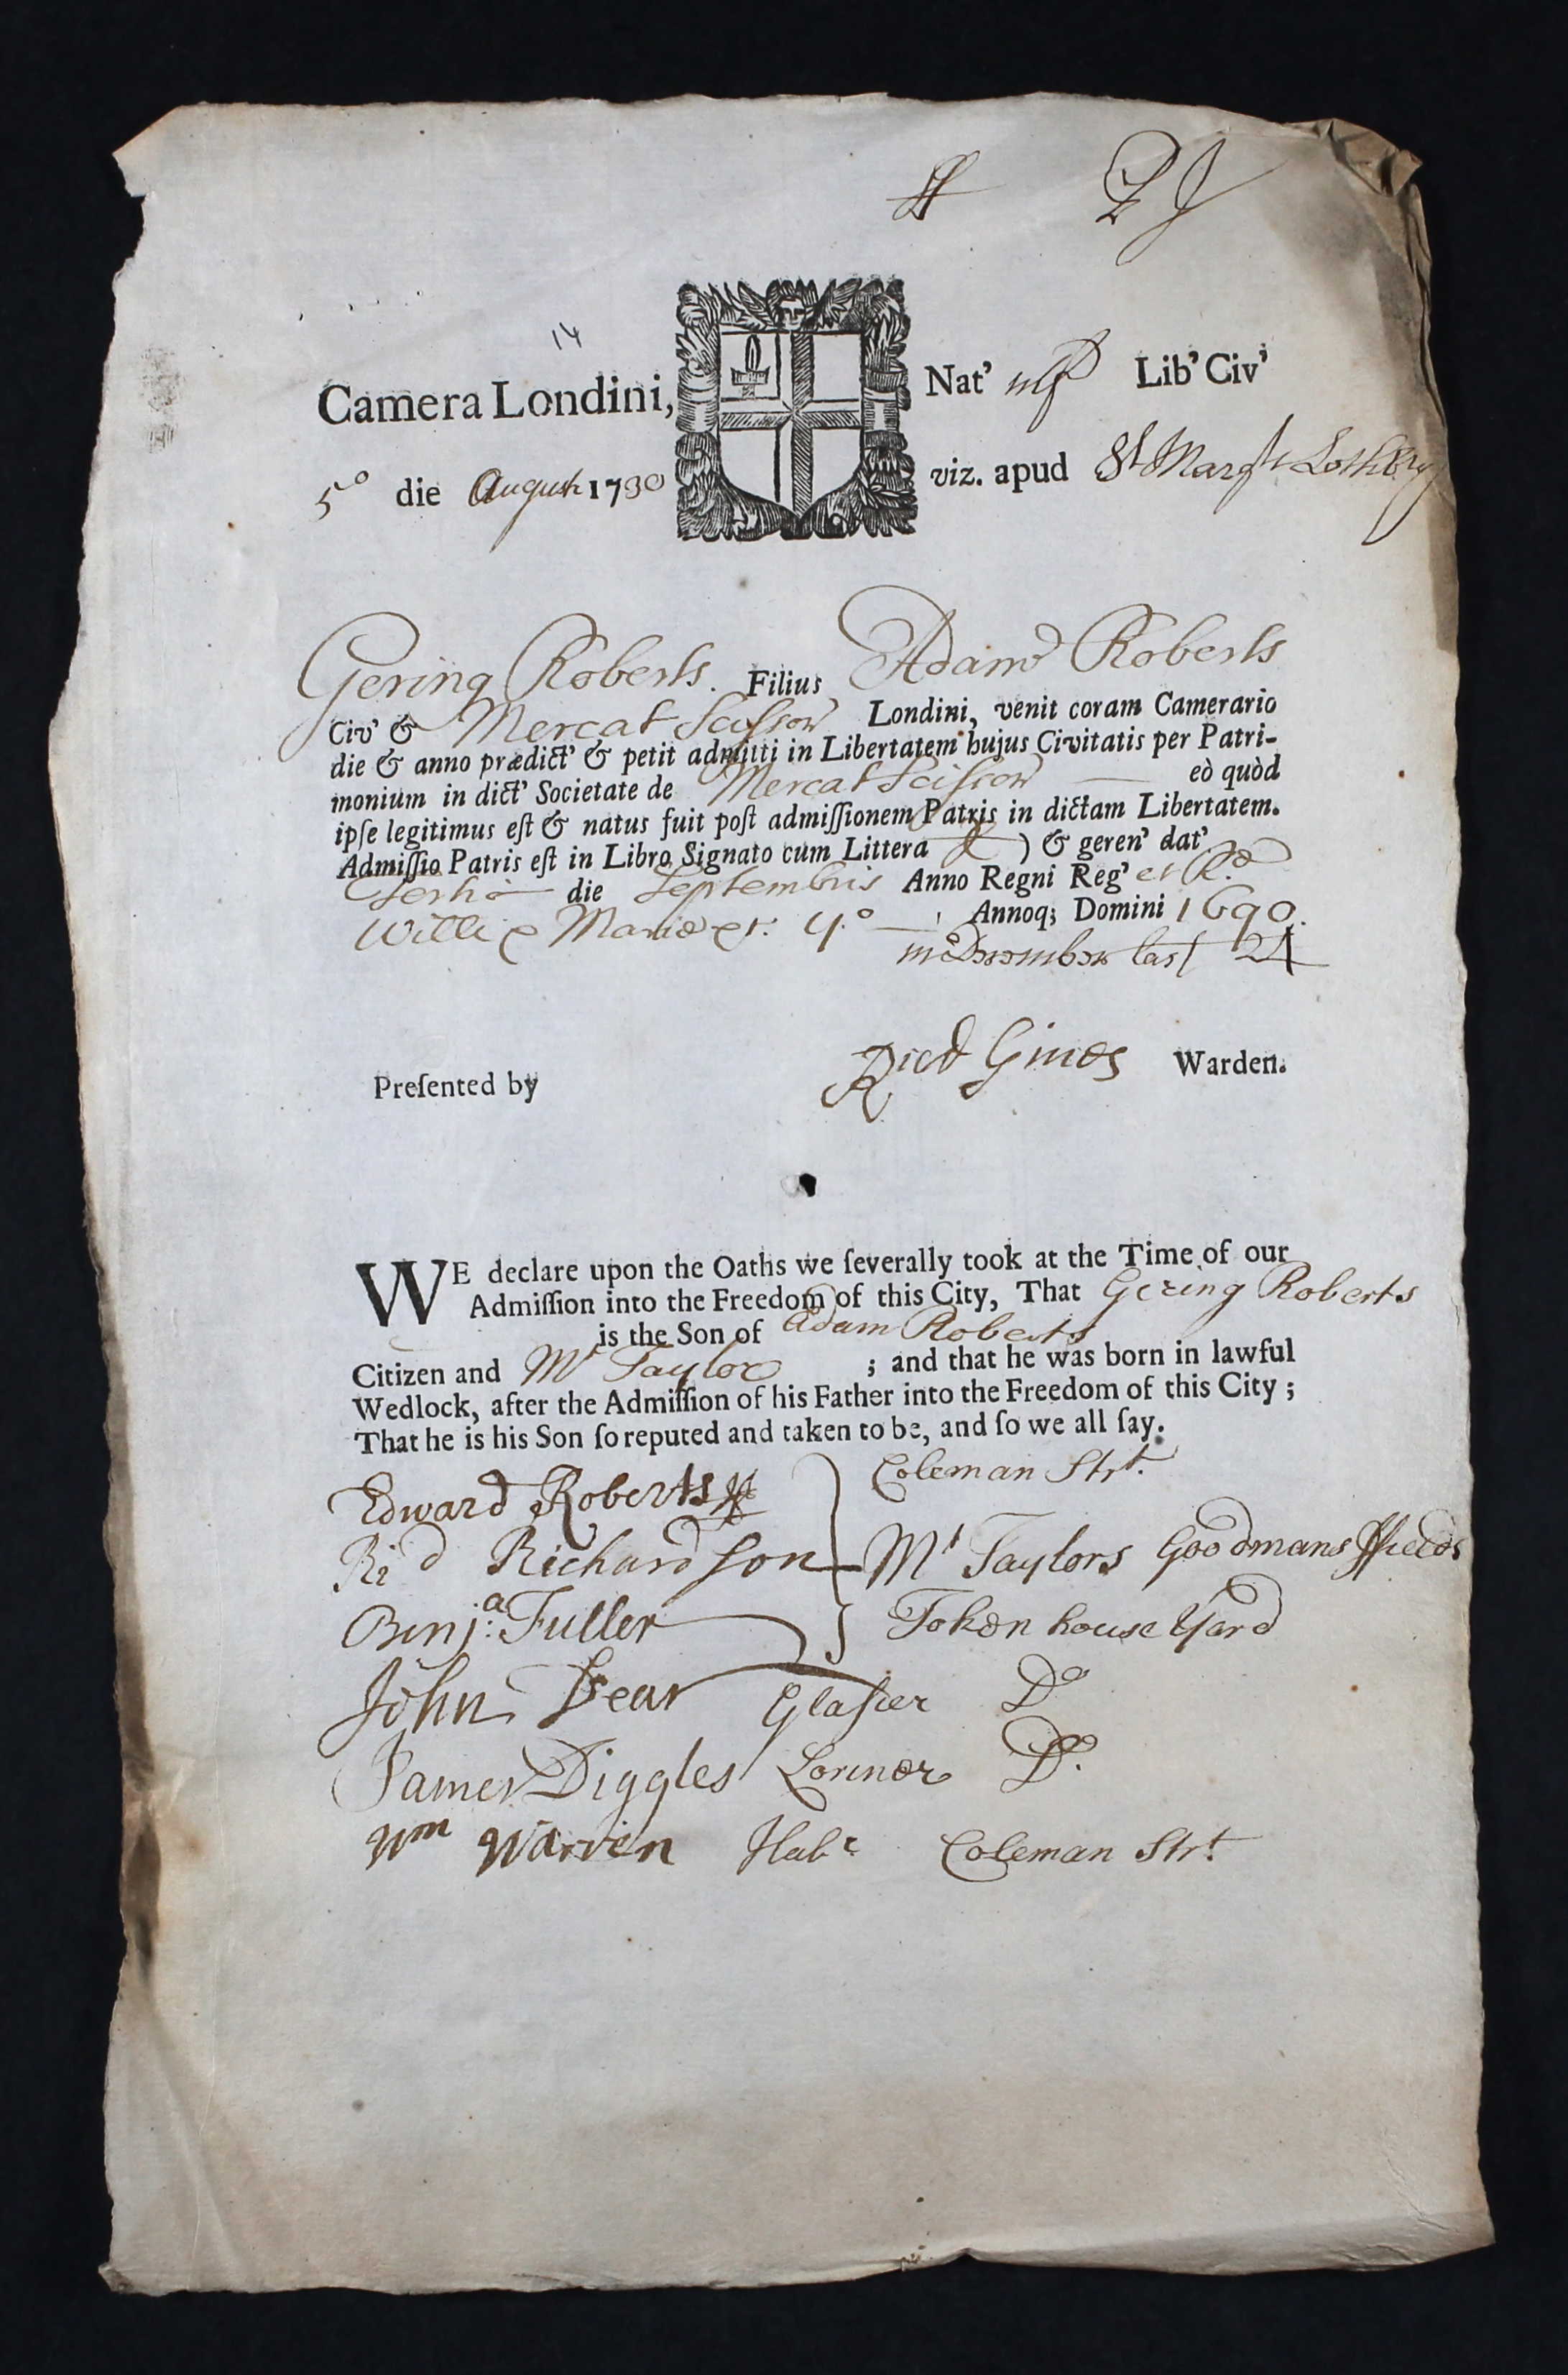 14
Camera Londini,
Nat' Lib' Civ'
5° die August 1730
viz. apud St Margts Lothbry
Gering Roberts. Filius Adami Roberts
Civ' & Mercat Scissor Londini, venit coram Camerario
die & anno prædict' & petit admitti in Libertatem hujus Civitatis per Patri-
monium in dict' Societate de Mercat Scissor eò quòd
ipſe legitimus eſt & natus fuit poſt admiſſionem Patris in dictam Libertatem.
Admiſſio Patris eſt in Libro Signato cum Littera ) & geren' dat'
Tertio die Septembris Anno Regni Reg' et R
Willi & Mariæ Annoq; Domini 1690.
in December last 21
Preſented by Ricd Gines Warden.
WE declare upon the Oaths we ſeverally took at the Time of our
Admiſſion into the Freedom of this City, That Gering Roberts
is the Son of Adam Roberts
Citizen and Mt Taylor ; and that he was born in lawful
Wedlock, after the Admiſſion of his Father into the Freedom of this City ;
That he is his Son ſo reputed and taken to be, and ſo we all ſay.
Edward Roberts Coleman Strt.
Ricd Richardson Mt Taylors Goodmans ffields
Benja: Fuller Token house Yard
John Dear Glasier Do
James Diggles Loriner Do.
Wm Warren Habr Coleman Strt